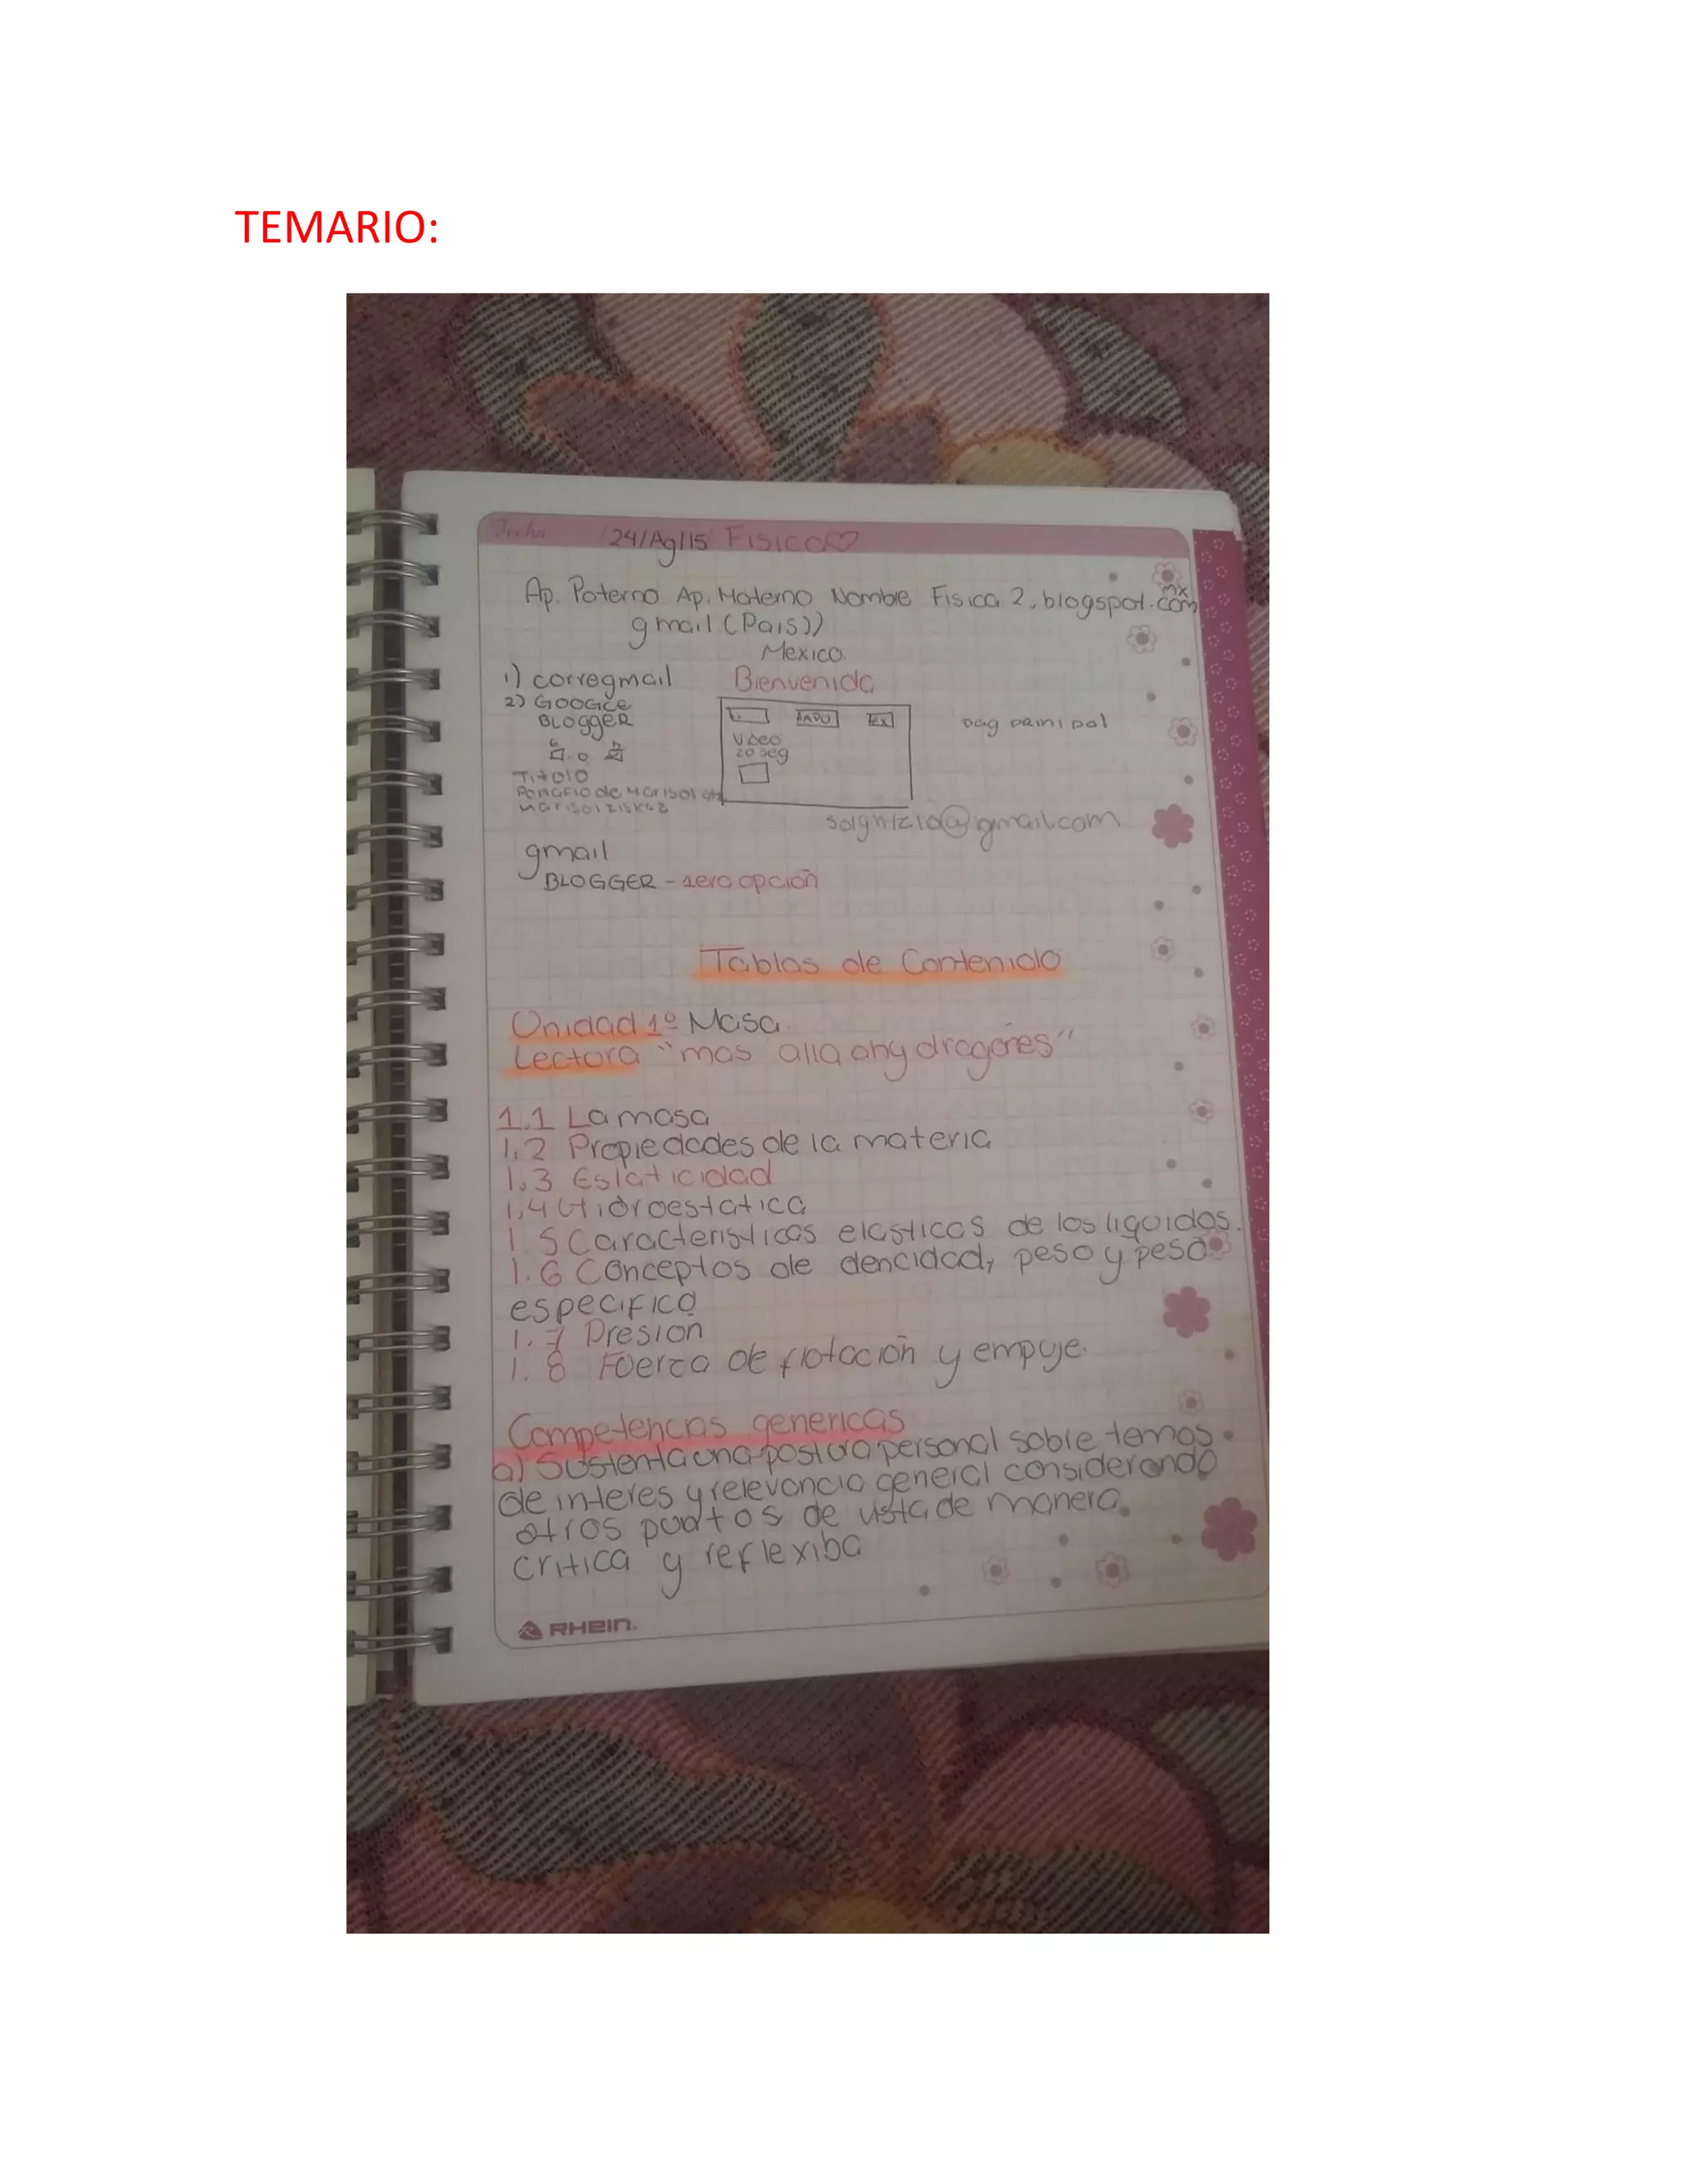 TEMARIO:
Fecha 24/Ag/15 FISICA
Ap. Paterno Ap. Materno Nombre Fisica 2.blogspot.com
mx
gmail (Pais))
Mexico
1) correogmail Bienvenida
2) GOOGLE
BLOGGER
pag
Video
20 seg
Titulo
gmail
BLOGGER - 1era opcion
Tablas de Contenido
Unidad 1º Masa.
Lectura "mas alla ahy dragones"
1.1 La masa
1.2 Propiedades de la materia
1.3 Eslaticidad
1.4 Hidroestatica
1.5 Caracteristicas elasticas de los liquidos.
1.6 Conceptos de dencidad, peso y peso
especifico
1.7 Presion
1.8 Fuerza de flotacion y empuje.
Competencias genericas
a) Sustenta una postura personal sobre temas
de interes y relevancia general considerando
otros puntos de vista de manera
critica y reflexiba
RHein.